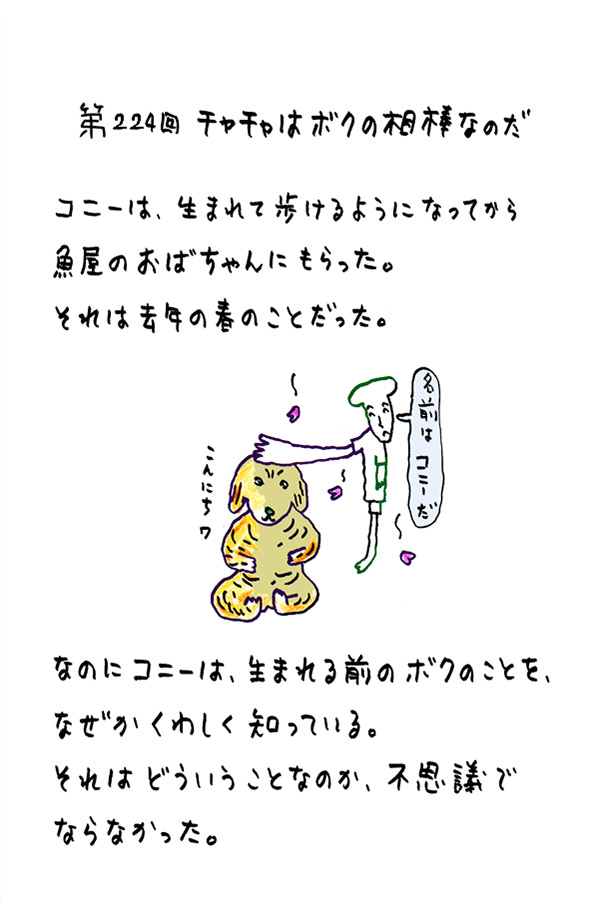 第224回 チャチャはボクの相棒なのだ
コニーは、生まれて歩けるようになってから
魚屋のおばちゃんにもらった。
それは去年の春のことだった。
名前はコニーだ
こんにちワ
なのにコニーは、生まれる前のボクのことを、
なぜかくわしく知っている。
それはどういうことなのか、不思議で
ならなかった。